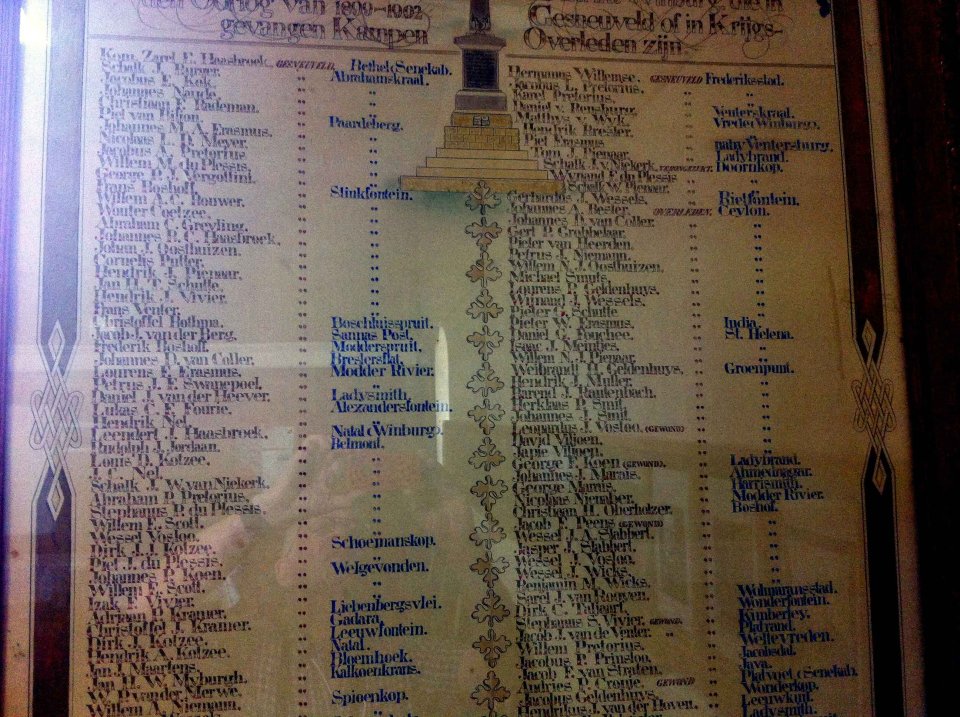 den Oorlog van 1899-1902
gevangen Kampen
Gesneuveld of in Krijgs-
Overleden zijn
Kom. Zarel E. Haasbroek. GESNEUVELD. Bethek Senekab.
Schalk J. Burger. Abrahamskraal.
Jacobus F. Kok. "
Johannes Naude. "
Christiaan F. Bademan. "
Piet van Biljon. Paardeberg.
Johannes M. A. Erasmus. "
Nicolaas L. Meyer. "
Jacobus L. Pretorius "
Willem M. du Plessis. "
George P. J. Vergottini. "
Frans Boshoff. Stinkfontein.
Willem A.C. Bouwer. "
Wouter Coetzee. "
Abraham C. Greyling. "
Johannes H. C. Haasbroek. "
Johan J. Oosthuizen. "
Cornelis Putter. "
Hendrik J. Pienaar. "
Jan H. T. Schutte. "
Hendrik J. Nivier. "
Hans Venter. "
Christoffel Bothma. Boschluisspruit.
Jacob J. van der Berg. Sannas Post.
Frederik Boshoff. Modderspruit.
Johannes D. van Coller. Breslersflat.
Lourens E. Erasmus. Modder Rivier.
Petrus J. E. Swanepoel. "
Daniel J. van der Heever. Ladysmith.
Lukas C. F. Fourie. Alexandersfontein.
Hendrik Nel.
Leendert J. Haasbroek. Natal c Winburgo.
Rudolph J. Jordaan. Belmont.
Louis D. Kotzee. "
Lou Nel. "
Schalk J. W. van Niekerk. "
Abraham P. Pretorius. "
Stephanus P. du Plessis. "
Willem E. Scott. "
Wessel Vosloo. "
Dirk J. J. Kotzee. Schoemanskop.
Piet J. du Plessis. "
Johannes C. Koen. Welgevonden.
Willem E. Scott. "
Izak F. Vivier. Liebenbergsvlei.
Adriaan P. Kramer. Gadara.
Christoffel T. Kramer. Leeuwfontein.
Dirk J. Kotzee. Natal.
Hendrik A. Kotzee. Bloemhoek.
Jan J. Maartens. Kalkoenkrans.
Jan H. W. Myburgh.
W. D. van der Merwe. Spioenkop.
Willem A. Niemann.
Hermanus Willemse. GESNEUVELD Frederiksstad.
Jacobus L. Pretorius. "
Karel Pretorius. "
Daniel v. Rensburg. Venterskraal.
Matthys v. Wyk. Vrede c Winburgo.
Hendrik Bresler.
Piet Erasmus. naby Ventersburg.
Tom J. Pienaar. Ladybrand.
Schalk J. v. Niekerk. VERONGELUKT. Doornkop.
Wynand F. du Plessis "
Schalk W. Pienaar.
Gerhardus J. Wessels. Rietfontein.
Johannes A. Bester. OVERLEDEN. Ceylon.
Johannes D. van Coller. "
Gert P. Grobbelaar. "
Pieter van Heerden. "
Petrus J. Niemann. "
Willem N. J. Oosthuizen. "
Michael Smuts. "
Lourens P. Geldenhuys. "
Wijnand J. Wessels. "
Pieter G. Schutte
Pieter W. Erasmus. India.
Daniel G. Fouchee. St. Helena.
Isaac J. Meintje. "
Willem N. J. Pienaar. "
Weibrandt H. Geldenhuys. Groenpunt.
Hendrik J. Muller. "
Barend J. Rautenbach. "
Herklaas P. Smit. "
Johannes J. Smit. "
Leopardus J. Vosloo. (GEWOND) "
David Viljoen. "
Japie Viljoen. "
George F. Koen (GEWOND). Ladybrand.
Johannes J. Marais. Ahmednagar.
George Marais. Harrismith.
Nicolaas Nienaber. Modder Rivier.
Christiaan H. Oberholzer. Boshof.
Jacob F. Peens (GEWOND) "
Wessel J. A. Slabbert. "
Jasper J. Slabbert. "
Wessel J. Vosloo. "
Wessel J. Wicks. "
Benjamin M. Wicks. Wolmaransstad.
Sarel J. van Rooyen. Wonderfontein.
Dirk C. Taljaart. Kimberley.
Stephanus S. Vivier. GEWOND. Platrand.
Jacob J. van de Venter. " Weltevreden.
Willem Pretorius. Jacobsdal.
Jacobus P. Prinsloo. Java.
Jacob F. van Straten. Platvoet c Senekab.
Andries D. Cronje. GEWOND Wonderkop.
Jacobus Geldenhuys. Leeuwkuil.
Hendrikus J. van der Hoven. Ladysmith.